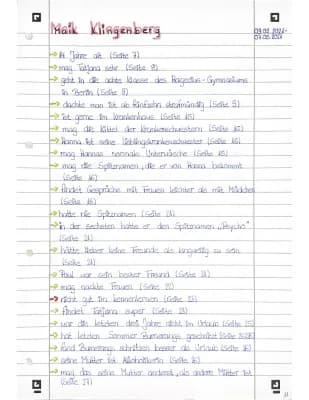 Maik Klingenberg
→ 14 Jahre alt (Seite 7)
→ mag Tatjana sehr (Seite 8)
→ geht in die achte Klasse des Hagecius-Gymnasiums
in Berlin (Seite 8)
→ dachte man ist ab fünfzehn strafmündig (Seite 9)
→ ist gerne im Krankenhaus (Seite 15)
→ mag die Kittel der Krankenschwestern (Seite 15)
→ Hanna ist seine Lieblingskrankenschwester (Seite 15)
→ mag Hannas normale Unterwäsche (Seite 15)
→ mag die Spitznamen, die er von Hanna bekommt
(Seite 16)
→ findet Gespräche mit Frauen leichter als mit Mädchen
(Seite 16)
→ hatte nie Spitznamen (Seite 21)
→ in der sechsten hatte er den Spitznamen „Psycho"
(Seite 21)
→ hätte lieber keine Freunde als langweilig zu sein
(Seite 21)
→ Paul war sein bester Freund (Seite 21)
→ mag nackte Frauen (Seite 22)
→ nicht gut im kennenlernen (Seite 23)
→ findet Tatjana super (Seite 23)
→ war die letzten drei Jahre nicht im Urlaub (Seite 25)
→ hat letzten Sommer Bumerangs geschnitzt
→ fand Bumerangs schnitzen besser als Urlaub (Seite 26)
→ seine Mutter ist Alkoholikerin (Seite 26)
→ mag das seine Mutter anders ist, als andere Mütter
(Seite 27)